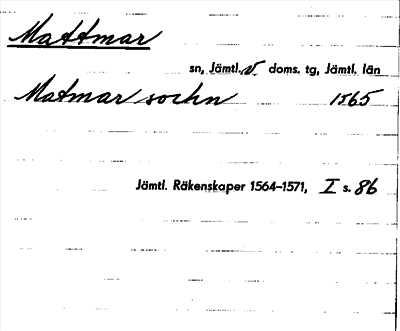 Mattmar
sn, Jämtl. v doms. tg, Jämtl. län
Matmar sochn 1565
Jämtl. Räkenskaper 1564–1571, I s. 86